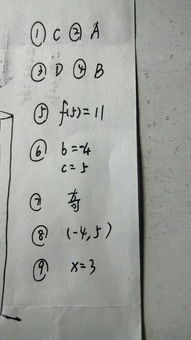 ① C ② A
③ D ④ B
⑤ f(5)=11
⑥ b=-4
c=5
⑦ 奇
⑧ (-4,5)
⑨ x=3